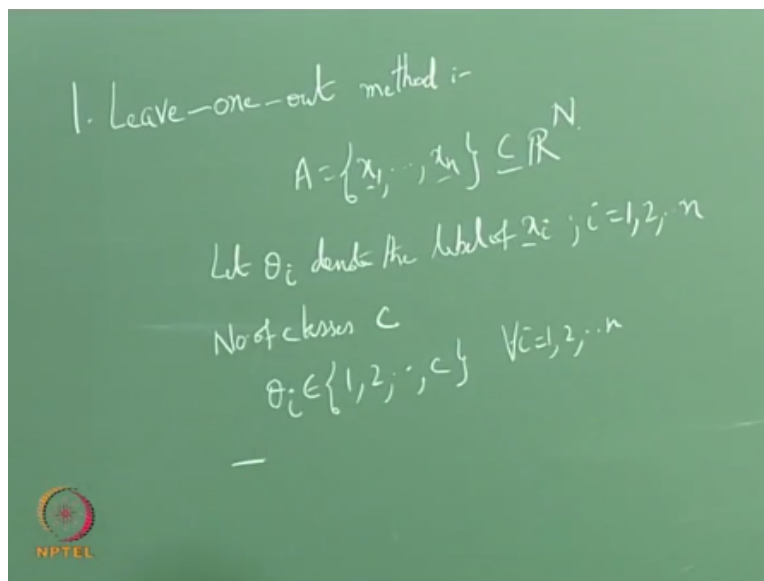 1. Leave-one-out method :-
A = {x̲₁, ..., x̲ₙ} ⊆ ℝᴺ.
Let θᵢ denote the label of x̲ᵢ ; i = 1, 2, .. n
No of classes C
θᵢ ∈ {1, 2, .., C} ∀i = 1, 2, .. n
NPTEL